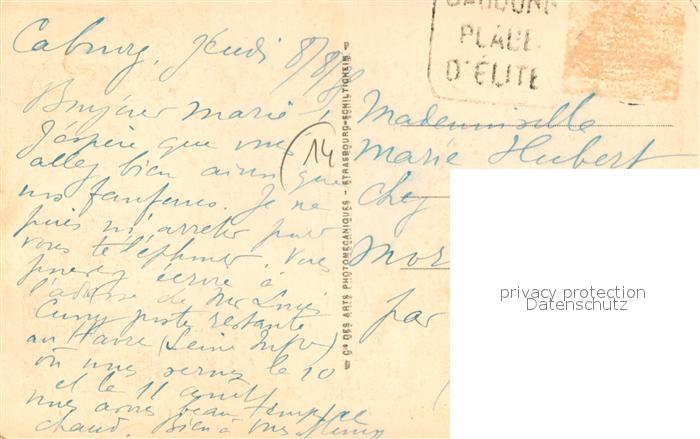 Cabourg, Jeudi 8/8/
Bonjour Marie,
J'espère que vous
allez bien ainsi que
vos
Je ne
puis m'arrêter pour
vous téléphoner. Vous
pouvez écrire à
l'adresse de Mr Louis
Cuny poste restante
au Havre (Seine Infre)
où nous serons le 10
et le 11 août
nous avons beau temps
chaud. Bien à vous
14
Cie DES ARTS PHOTOMECANIQUES - STRASBOURG-SCHILTIGHEIM
CABOURG
PLAGE
D'ÉLITE
Mademoiselle
Marie Hubert
chez
Mor
par
privacy protection
Datenschutz